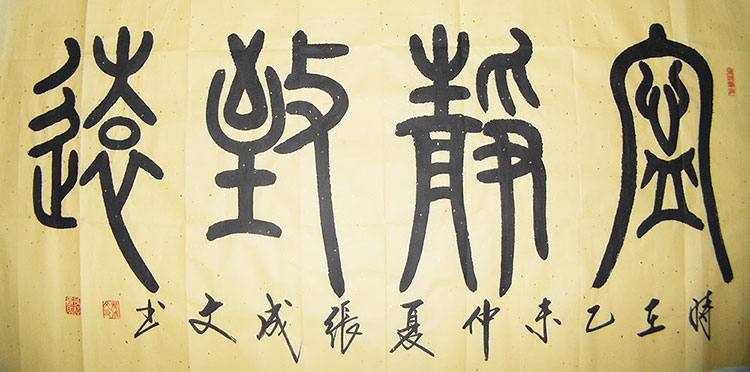 寍靜致遠
時在乙未仲夏張成文书